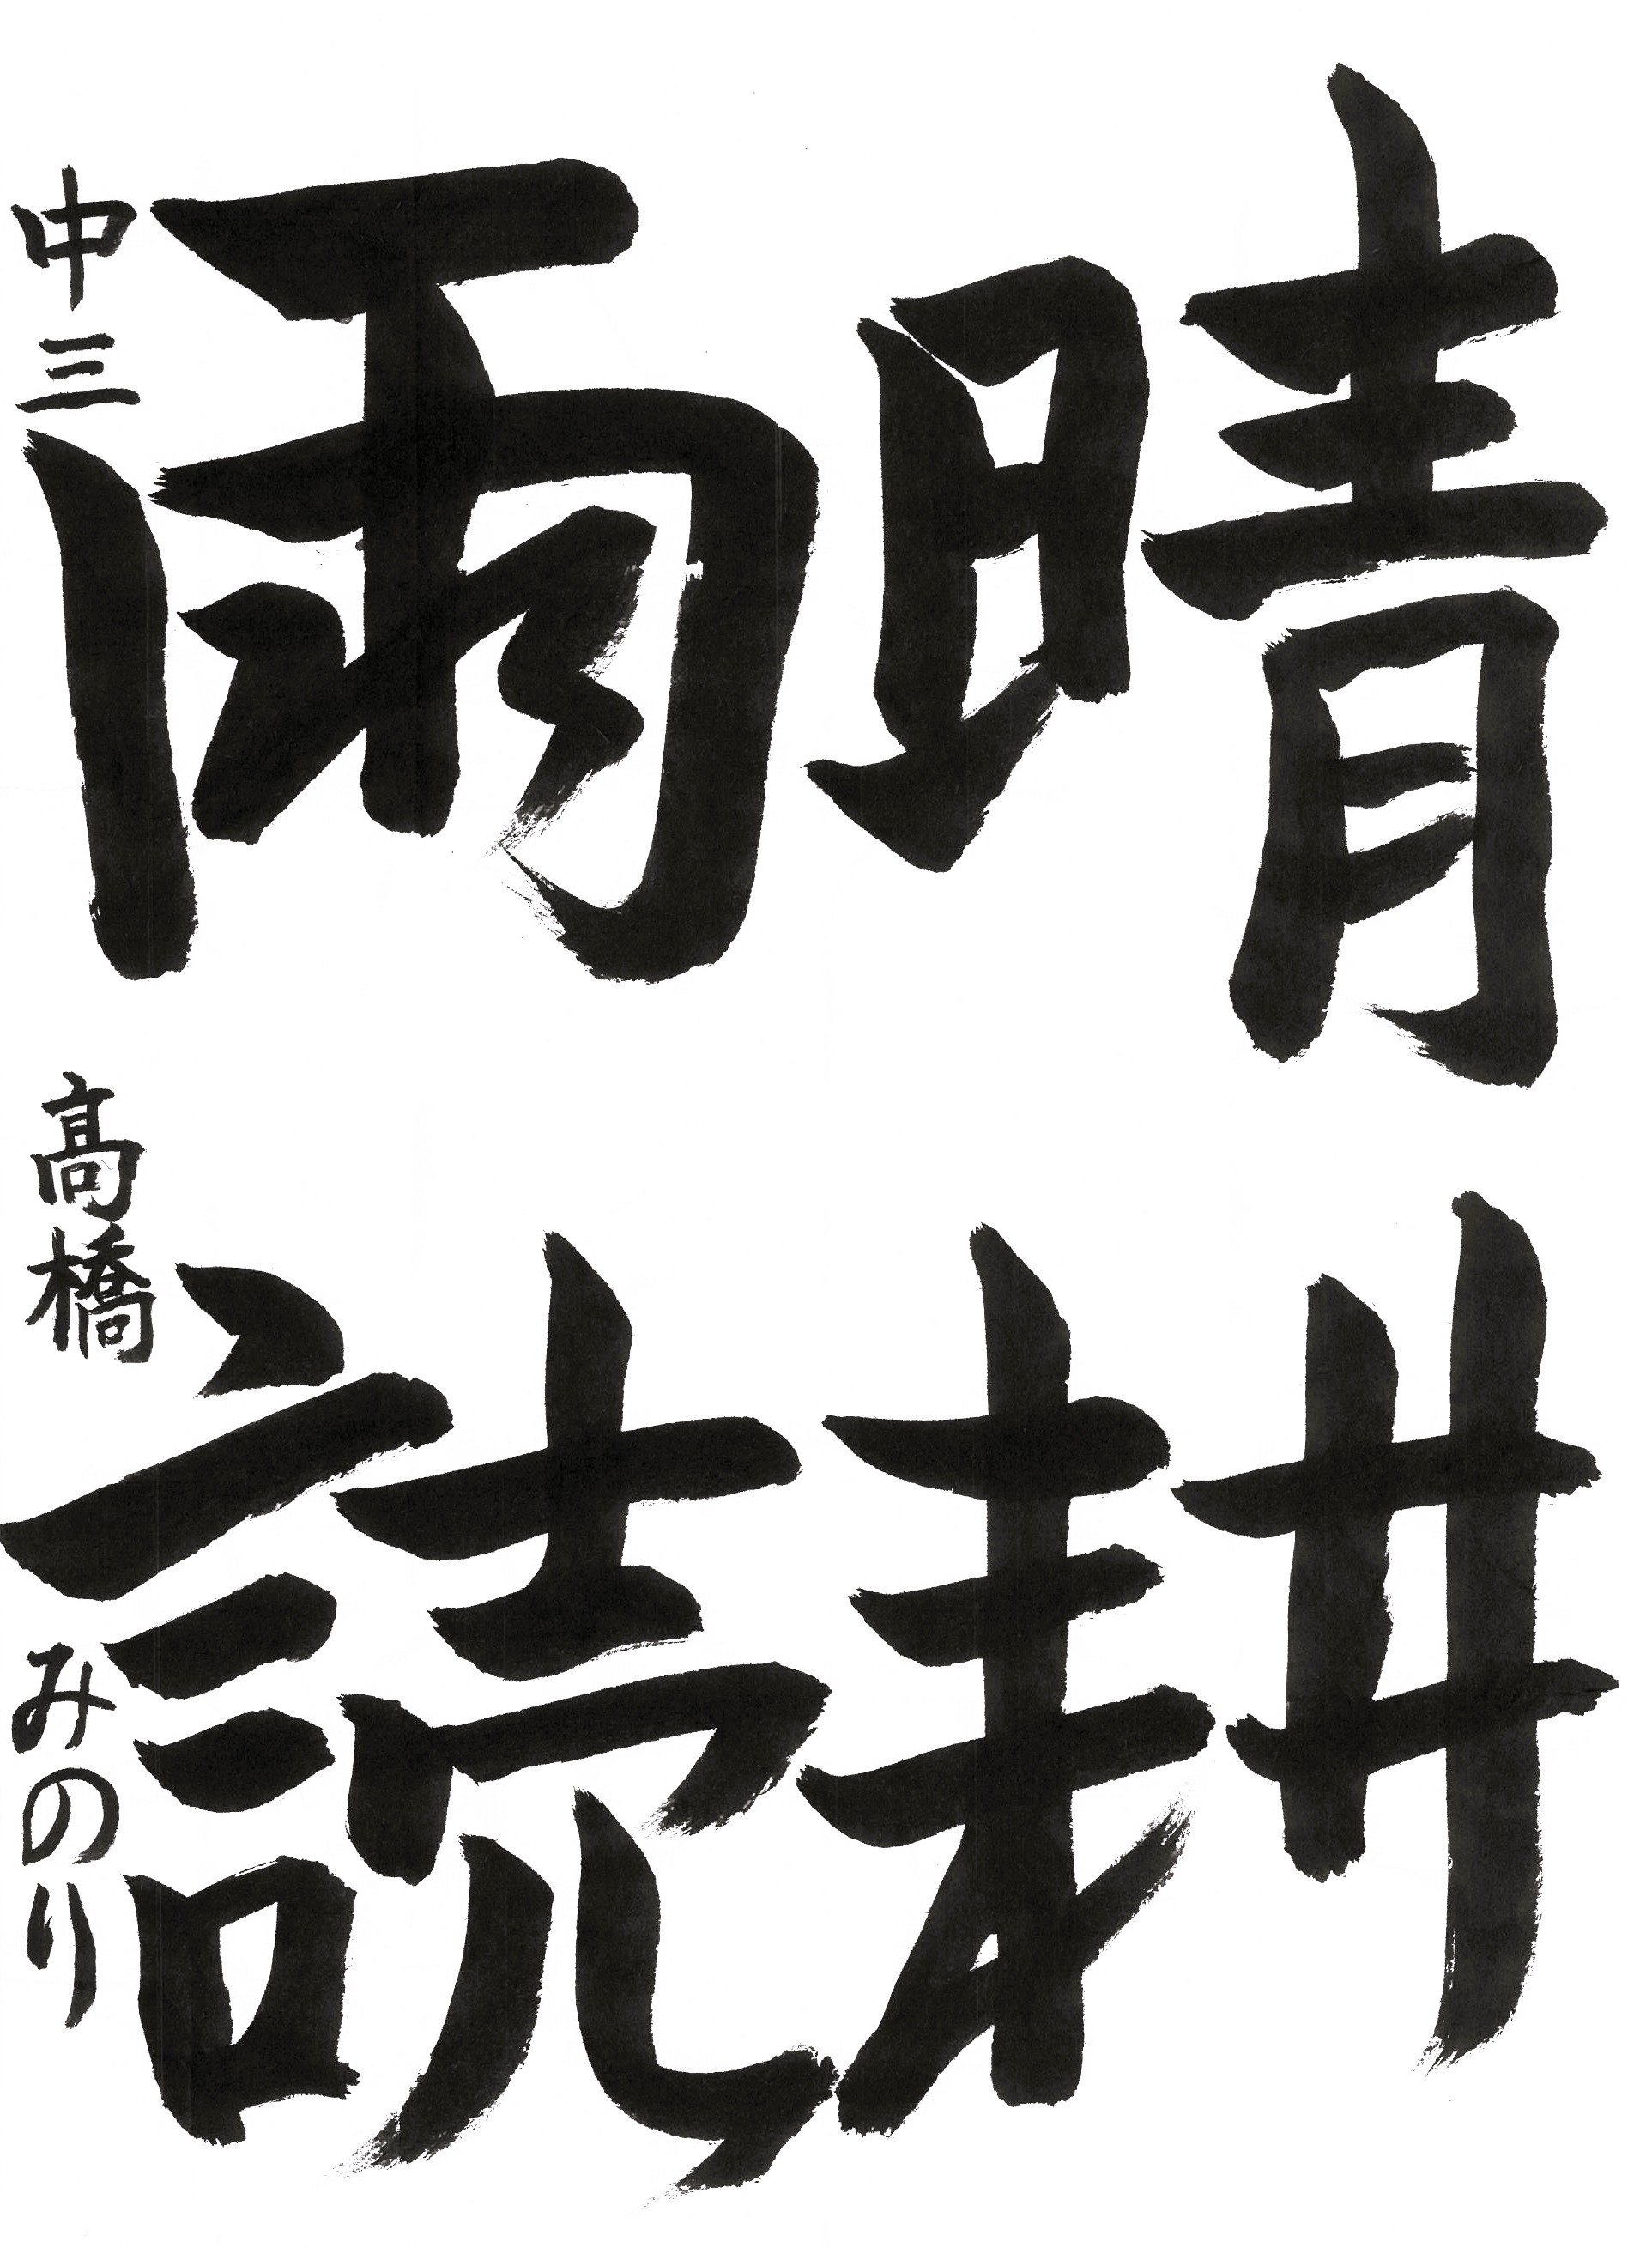 晴耕
雨読
中三 髙橋 みのり